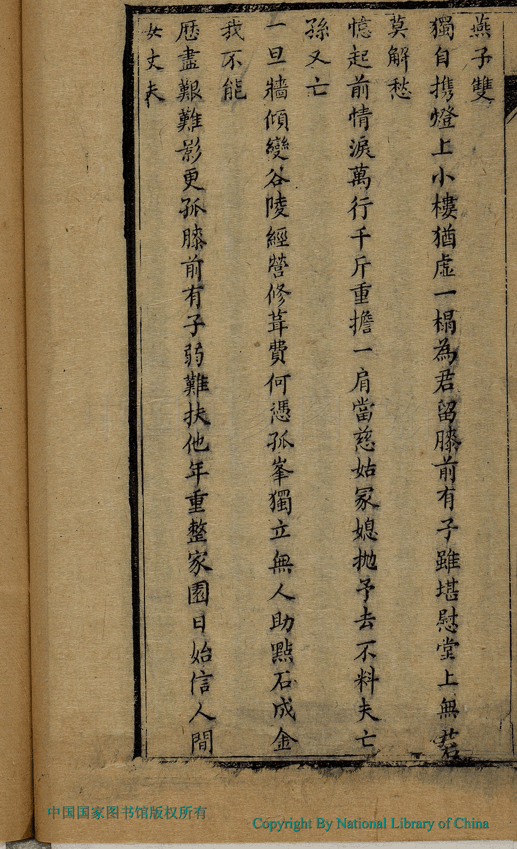 燕子雙
獨自携燈上小樓猶虛一榻為君留膝前有子雖堪慰堂上無若
莫解愁
憶起前情淚萬行千斤重擔一肩當慈姑冢媳拋予去不料夫亡
孫又亡
一旦牆傾變谷陵經營修葺費何憑孤峯獨立無人助點石成金
我不能
歷盡艱難影更孤膝前有子弱難扶他年重整家園日始信人間
女丈夫
中国国家图书馆版权所有
Copyright By National Library of China